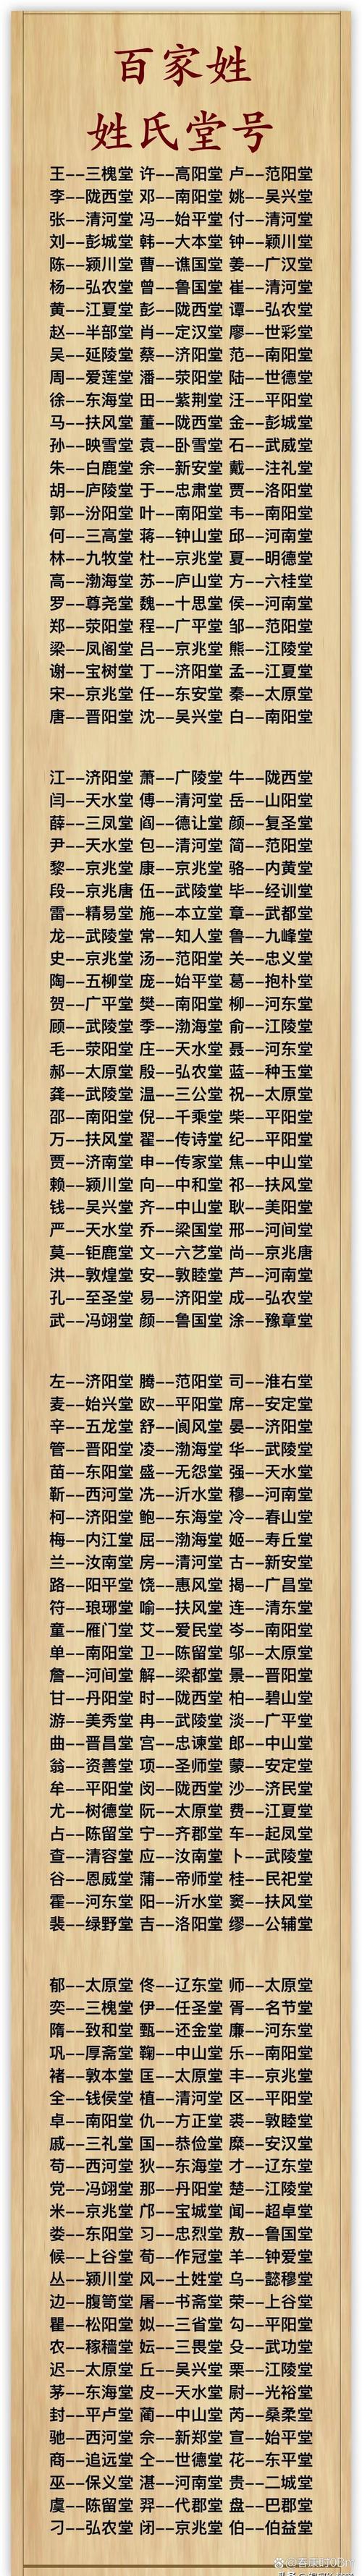 百家姓
姓氏堂号
王--三槐堂 许--高阳堂 卢--范阳堂
李--陇西堂 邓--南阳堂 姚--吴兴堂
张--清河堂 冯--始平堂 付--清河堂
刘--彭城堂 韩--大本堂 钟--颖川堂
陈--颖川堂 曹--谯国堂 姜--广汉堂
杨--弘农堂 曾--鲁国堂 崔--清河堂
黄--江夏堂 彭--陇西堂 谭--弘农堂
赵--半部堂 肖--定汉堂 廖--世彩堂
吴--延陵堂 蔡--济阳堂 范--南阳堂
周--爱莲堂 潘--荥阳堂 陆--世德堂
徐--东海堂 田--紫荆堂 汪--平阳堂
马--扶风堂 董--陇西堂 金--彭城堂
孙--映雪堂 袁--卧雪堂 石--武威堂
朱--白鹿堂 余--新安堂 戴--注礼堂
胡--庐陵堂 于--忠肃堂 贾--洛阳堂
郭--汾阳堂 叶--南阳堂 韦--南阳堂
何--三高堂 蒋--钟山堂 邱--河南堂
林--九牧堂 杜--京兆堂 夏--明德堂
高--渤海堂 苏--庐山堂 方--六桂堂
罗--尊尧堂 魏--十思堂 侯--河南堂
郑--荥阳堂 程--广平堂 邹--范阳堂
梁--凤阁堂 吕--京兆堂 熊--江陵堂
谢--宝树堂 丁--济阳堂 孟--江夏堂
宋--京兆堂 任--东安堂 秦--太原堂
唐--晋阳堂 沈--吴兴堂 白--南阳堂
江--济阳堂 萧--广陵堂 牛--陇西堂
闫--天水堂 傅--清河堂 岳--山阳堂
薛--三凤堂 阎--德让堂 颜--复圣堂
尹--天水堂 包--清河堂 简--范阳堂
黎--京兆堂 康--京兆堂 骆--内黄堂
段--京兆唐 伍--武陵堂 毕--经训堂
雷--精易堂 施--本立堂 章--武都堂
龙--武陵堂 常--知人堂 鲁--九峰堂
史--京兆堂 汤--范阳堂 关--忠义堂
陶--五柳堂 庞--始平堂 葛--抱朴堂
贺--广平堂 樊--南阳堂 柳--河东堂
顾--武陵堂 季--渤海堂 俞--江陵堂
毛--荥阳堂 庄--天水堂 聂--河东堂
郝--太原堂 殷--弘农堂 蓝--种玉堂
龚--武陵堂 温--三公堂 祝--太原堂
邵--南阳堂 倪--千乘堂 柴--平阳堂
万--扶风堂 翟--传诗堂 纪--平阳堂
贾--济南堂 申--传家堂 焦--中山堂
赖--颖川堂 向--中和堂 祁--扶风堂
钱--吴兴堂 齐--中山堂 耿--美阳堂
严--天水堂 乔--梁国堂 邢--河间堂
莫--钜鹿堂 文--六艺堂 尚--京兆唐
洪--敦煌堂 安--敦睦堂 芦--河南堂
孔--至圣堂 易--济阳堂 成--弘农堂
武--冯翊堂 颜--鲁国堂 涂--豫章堂
左--济阳堂 腾--范阳堂 司--淮右堂
麦--始兴堂 欧--平阳堂 席--安定堂
辛--五龙堂 舒--阆风堂 晏--济阳堂
管--晋阳堂 凌--渤海堂 华--武陵堂
苗--东阳堂 盛--无怨堂 强--天水堂
靳--西河堂 冼--沂水堂 穆--河南堂
柯--济阳堂 鲍--东海堂 冷--春山堂
梅--内江堂 屈--渤海堂 姬--寿丘堂
兰--汝南堂 房--清河堂 古--新安堂
路--阳平堂 饶--惠风堂 揭--广昌堂
符--琅琊堂 喻--扶风堂 连--清东堂
童--雁门堂 艾--爱民堂 岑--南阳堂
单--南阳堂 卫--陈留堂 邬--太原堂
詹--河间堂 解--梁都堂 景--晋阳堂
甘--丹阳堂 时--陇西堂 柏--碧山堂
游--美秀堂 冉--武陵堂 淡--广平堂
曲--晋昌堂 宫--忠谏堂 郎--中山堂
翁--资善堂 项--圣师堂 蒙--安定堂
牟--平阳堂 闵--陇西堂 沙--济民堂
尤--树德堂 阮--太原堂 费--江夏堂
占--陈留堂 宁--齐郡堂 车--起凤堂
查--清容堂 应--汝南堂 卜--武陵堂
谷--恩威堂 蒲--帝师堂 桂--民祀堂
霍--河东堂 阳--沂水堂 窦--扶风堂
裴--绿野堂 吉--洛阳堂 缪--公辅堂
郁--太原堂 佟--辽东堂 师--太原堂
奕--三槐堂 伊--任圣堂 胥--名节堂
隋--致和堂 甄--还金堂 廉--河东堂
巩--厚斋堂 鞠--中山堂 乐--南阳堂
褚--敦本堂 匡--太原堂 丰--京兆堂
全--钱侯堂 植--清河堂 区--平阳堂
卓--南阳堂 仇--方正堂 裘--敦睦堂
戚--三礼堂 国--恭俭堂 糜--安汉堂
苟--西河堂 狄--东海堂 才--辽东堂
党--冯翊堂 那--丹阳堂 楚--江陵堂
米--京兆堂 邝--宝城堂 闻--超卓堂
娄--东阳堂 习--忠烈堂 敖--鲁国堂
候--上谷堂 荀--作冠堂 羊--钟爱堂
丛--颖川堂 风--土姓堂 乌--懿穆堂
边--腹笥堂 屠--书斋堂 荣--上谷堂
瞿--松阳堂 姒--三省堂 勾--平阳堂
农--稼穑堂 妘--三畏堂 殳--武功堂
迟--太原堂 丘--吴兴堂 栗--江陵堂
茅--东海堂 皮--天水堂 尉--光裕堂
封--平卢堂 蔺--中山堂 芮--桑柔堂
驰--西河堂 佘--新郑堂 宣--始平堂
商--追远堂 仝--世德堂 花--东平堂
巫--保义堂 湛--河南堂 贵--二城堂
虞--陈留堂 羿--代郡堂 盘--巴郡堂
刁--弘农堂 闭--京兆堂 伯--伯益堂